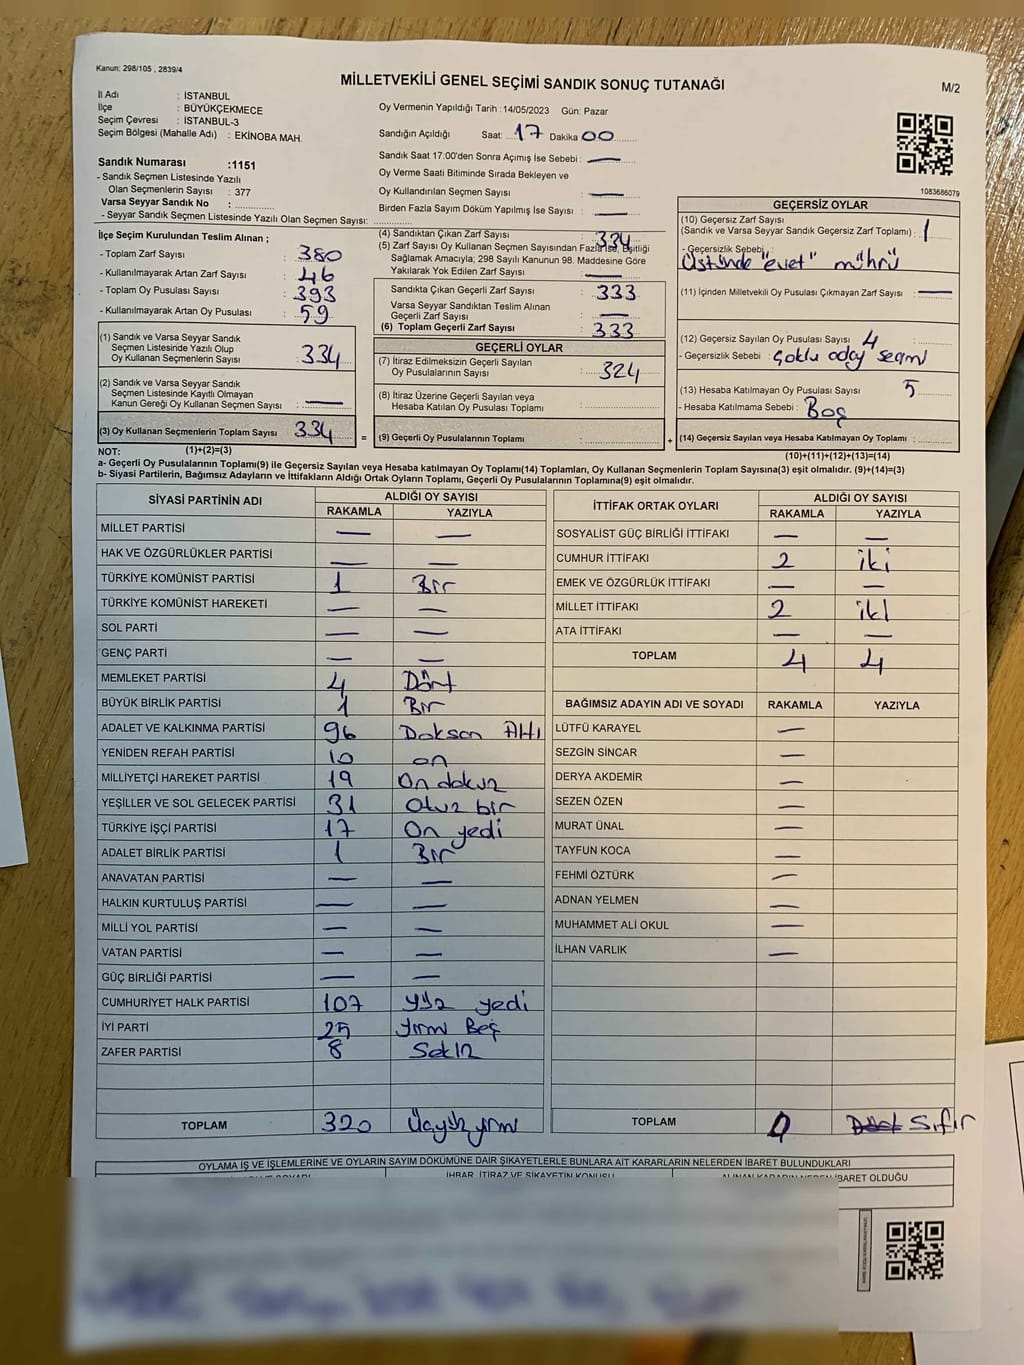 Kanun: 298/105 , 2839/4
MİLLETVEKİLİ GENEL SEÇİMİ SANDIK SONUÇ TUTANAĞI
M/2
İl Adı : İSTANBUL
İlçe : BÜYÜKÇEKMECE
Seçim Çevresi : İSTANBUL-3
Seçim Bölgesi (Mahalle Adı) : EKİNOBA MAH.
Oy Vermenin Yapıldığı Tarih : 14/05/2023 Gün: Pazar
Sandığın Açıldığı Saat: 17 Dakika 00
Sandık Saat 17:00'den Sonra Açımış İse Sebebi : —
Oy Verme Saati Bitiminde Sırada Bekleyen ve
Oy Kullandırılan Seçmen Sayısı : —
Birden Fazla Sayım Döküm Yapılmış İse Sayısı : —
1083686079
Sandık Numarası :1151
- Sandık Seçmen Listesinde Yazılı
Olan Seçmenlerin Sayısı : 377
Varsa Seyyar Sandık No :
- Seyyar Sandık Seçmen Listesinde Yazılı Olan Seçmen Sayısı:
İlçe Seçim Kurulundan Teslim Alınan ;
- Toplam Zarf Sayısı : 380
- Kullanılmayarak Artan Zarf Sayısı : 46
- Toplam Oy Pusulası Sayısı : 393
- Kullanılmayarak Artan Oy Pusulası : 59
(1) Sandık ve Varsa Seyyar Sandık
Seçmen Listesinde Yazılı Olup
Oy Kullanan Seçmenlerin Sayısı : 334
(2) Sandık ve Varsa Seyyar Sandık
Seçmen Listesinde Kayıtlı Olmayan
Kanun Gereği Oy Kullanan Seçmen Sayısı : —
(3) Oy Kullanan Seçmenlerin Toplam Sayısı 334
(1)+(2)=(3)
(4) Sandıktan Çıkan Zarf Sayısı : 334
(5) Zarf Sayısı Oy Kullanan Seçmen Sayısından Fazla İse, Eşitliği
Sağlamak Amacıyla; 298 Sayılı Kanunun 98. Maddesine Göre
Yakılarak Yok Edilen Zarf Sayısı : —
Sandıkta Çıkan Geçerli Zarf Sayısı : 333
Varsa Seyyar Sandıktan Teslim Alınan
Geçerli Zarf Sayısı : —
(6) Toplam Geçerli Zarf Sayısı : 333
GEÇERLİ OYLAR
(7) İtiraz Edilmeksizin Geçerli Sayılan
Oy Pusulalarının Sayısı : 324
(8) İtiraz Üzerine Geçerli Sayılan veya
Hesaba Katılan Oy Pusulası Toplamı :
= (9) Geçerli Oy Pusulalarının Toplamı : +
GEÇERSİZ OYLAR
(10) Geçersiz Zarf Sayısı
(Sandık ve Varsa Seyyar Sandık Geçersiz Zarf Toplamı) : 1
- Geçersizlik Sebebi :
Üstünde "evet" mührü
(11) İçinden Milletvekili Oy Pusulası Çıkmayan Zarf Sayısı : —
(12) Geçersiz Sayılan Oy Pusulası Sayısı : 4
- Geçersizlik Sebebi : Çoklu aday seçimi
(13) Hesaba Katılmayan Oy Pusulası Sayısı : 5
- Hesaba Katılmama Sebebi : Boş
(14) Geçersiz Sayılan veya Hesaba Katılmayan Oy Toplamı :
(10)+(11)+(12)+(13)=(14)
NOT:
a- Geçerli Oy Pusulalarının Toplamı(9) ile Geçersiz Sayılan veya Hesaba katılmayan Oy Toplamı(14) Toplamları, Oy Kullanan Seçmenlerin Toplam Sayısına(3) eşit olmalıdır. (9)+(14)=(3)
b- Siyasi Partilerin, Bağımsız Adayların ve İttifakların Aldığı Ortak Oyların Toplamı, Geçerli Oy Pusulalarının Toplamına(9) eşit olmalıdır.
SİYASİ PARTİNİN ADI ALDIĞI OY SAYISI
RAKAMLA YAZIYLA
MİLLET PARTİSİ — —
HAK VE ÖZGÜRLÜKLER PARTİSİ — —
TÜRKİYE KOMÜNİST PARTİSİ 1 Bir
TÜRKİYE KOMÜNİST HAREKETİ — —
SOL PARTİ — —
GENÇ PARTİ — —
MEMLEKET PARTİSİ 4 Dört
BÜYÜK BİRLİK PARTİSİ 1 Bir
ADALET VE KALKINMA PARTİSİ 96 Doksan Altı
YENİDEN REFAH PARTİSİ 10 on
MİLLİYETÇİ HAREKET PARTİSİ 19 On dokuz
YEŞİLLER VE SOL GELECEK PARTİSİ 31 Otuz bir
TÜRKİYE İŞÇİ PARTİSİ 17 On yedi
ADALET BİRLİK PARTİSİ 1 Bir
ANAVATAN PARTİSİ — —
HALKIN KURTULUŞ PARTİSİ — —
MİLLİ YOL PARTİSİ — —
VATAN PARTİSİ — —
GÜÇ BİRLİĞİ PARTİSİ — —
CUMHURİYET HALK PARTİSİ 107 yüz yedi
İYİ PARTİ 25 yirmi Beş
ZAFER PARTİSİ 8 Sekiz
TOPLAM 320 Üçyüz yirmi
İTTİFAK ORTAK OYLARI ALDIĞI OY SAYISI
RAKAMLA YAZIYLA
SOSYALİST GÜÇ BİRLİĞİ İTTİFAKI — —
CUMHUR İTTİFAKI 2 iki
EMEK VE ÖZGÜRLÜK İTTİFAKI — —
MİLLET İTTİFAKI 2 iki
ATA İTTİFAKI — —
TOPLAM 4 4
BAĞIMSIZ ADAYIN ADI VE SOYADI RAKAMLA YAZIYLA
LÜTFÜ KARAYEL —
SEZGİN SİNCAR —
DERYA AKDEMİR —
SEZEN ÖZEN —
MURAT ÜNAL —
TAYFUN KOCA —
FEHMİ ÖZTÜRK —
ADNAN YELMEN —
MUHAMMET ALİ OKUL —
İLHAN VARLIK —
TOPLAM 0 Sıfır
OYLAMA İŞ VE İŞLEMLERİNE VE OYLARIN SAYIM DÖKÜMÜNE DAİR ŞİKAYETLERLE BUNLARA AİT KARARLARIN NELERDEN İBARET BULUNDUKLARI
İHBAR, İTİRAZ VE ŞİKAYETİN KONUSU ALINAN KARARIN NEDEN İBARET OLDUĞU